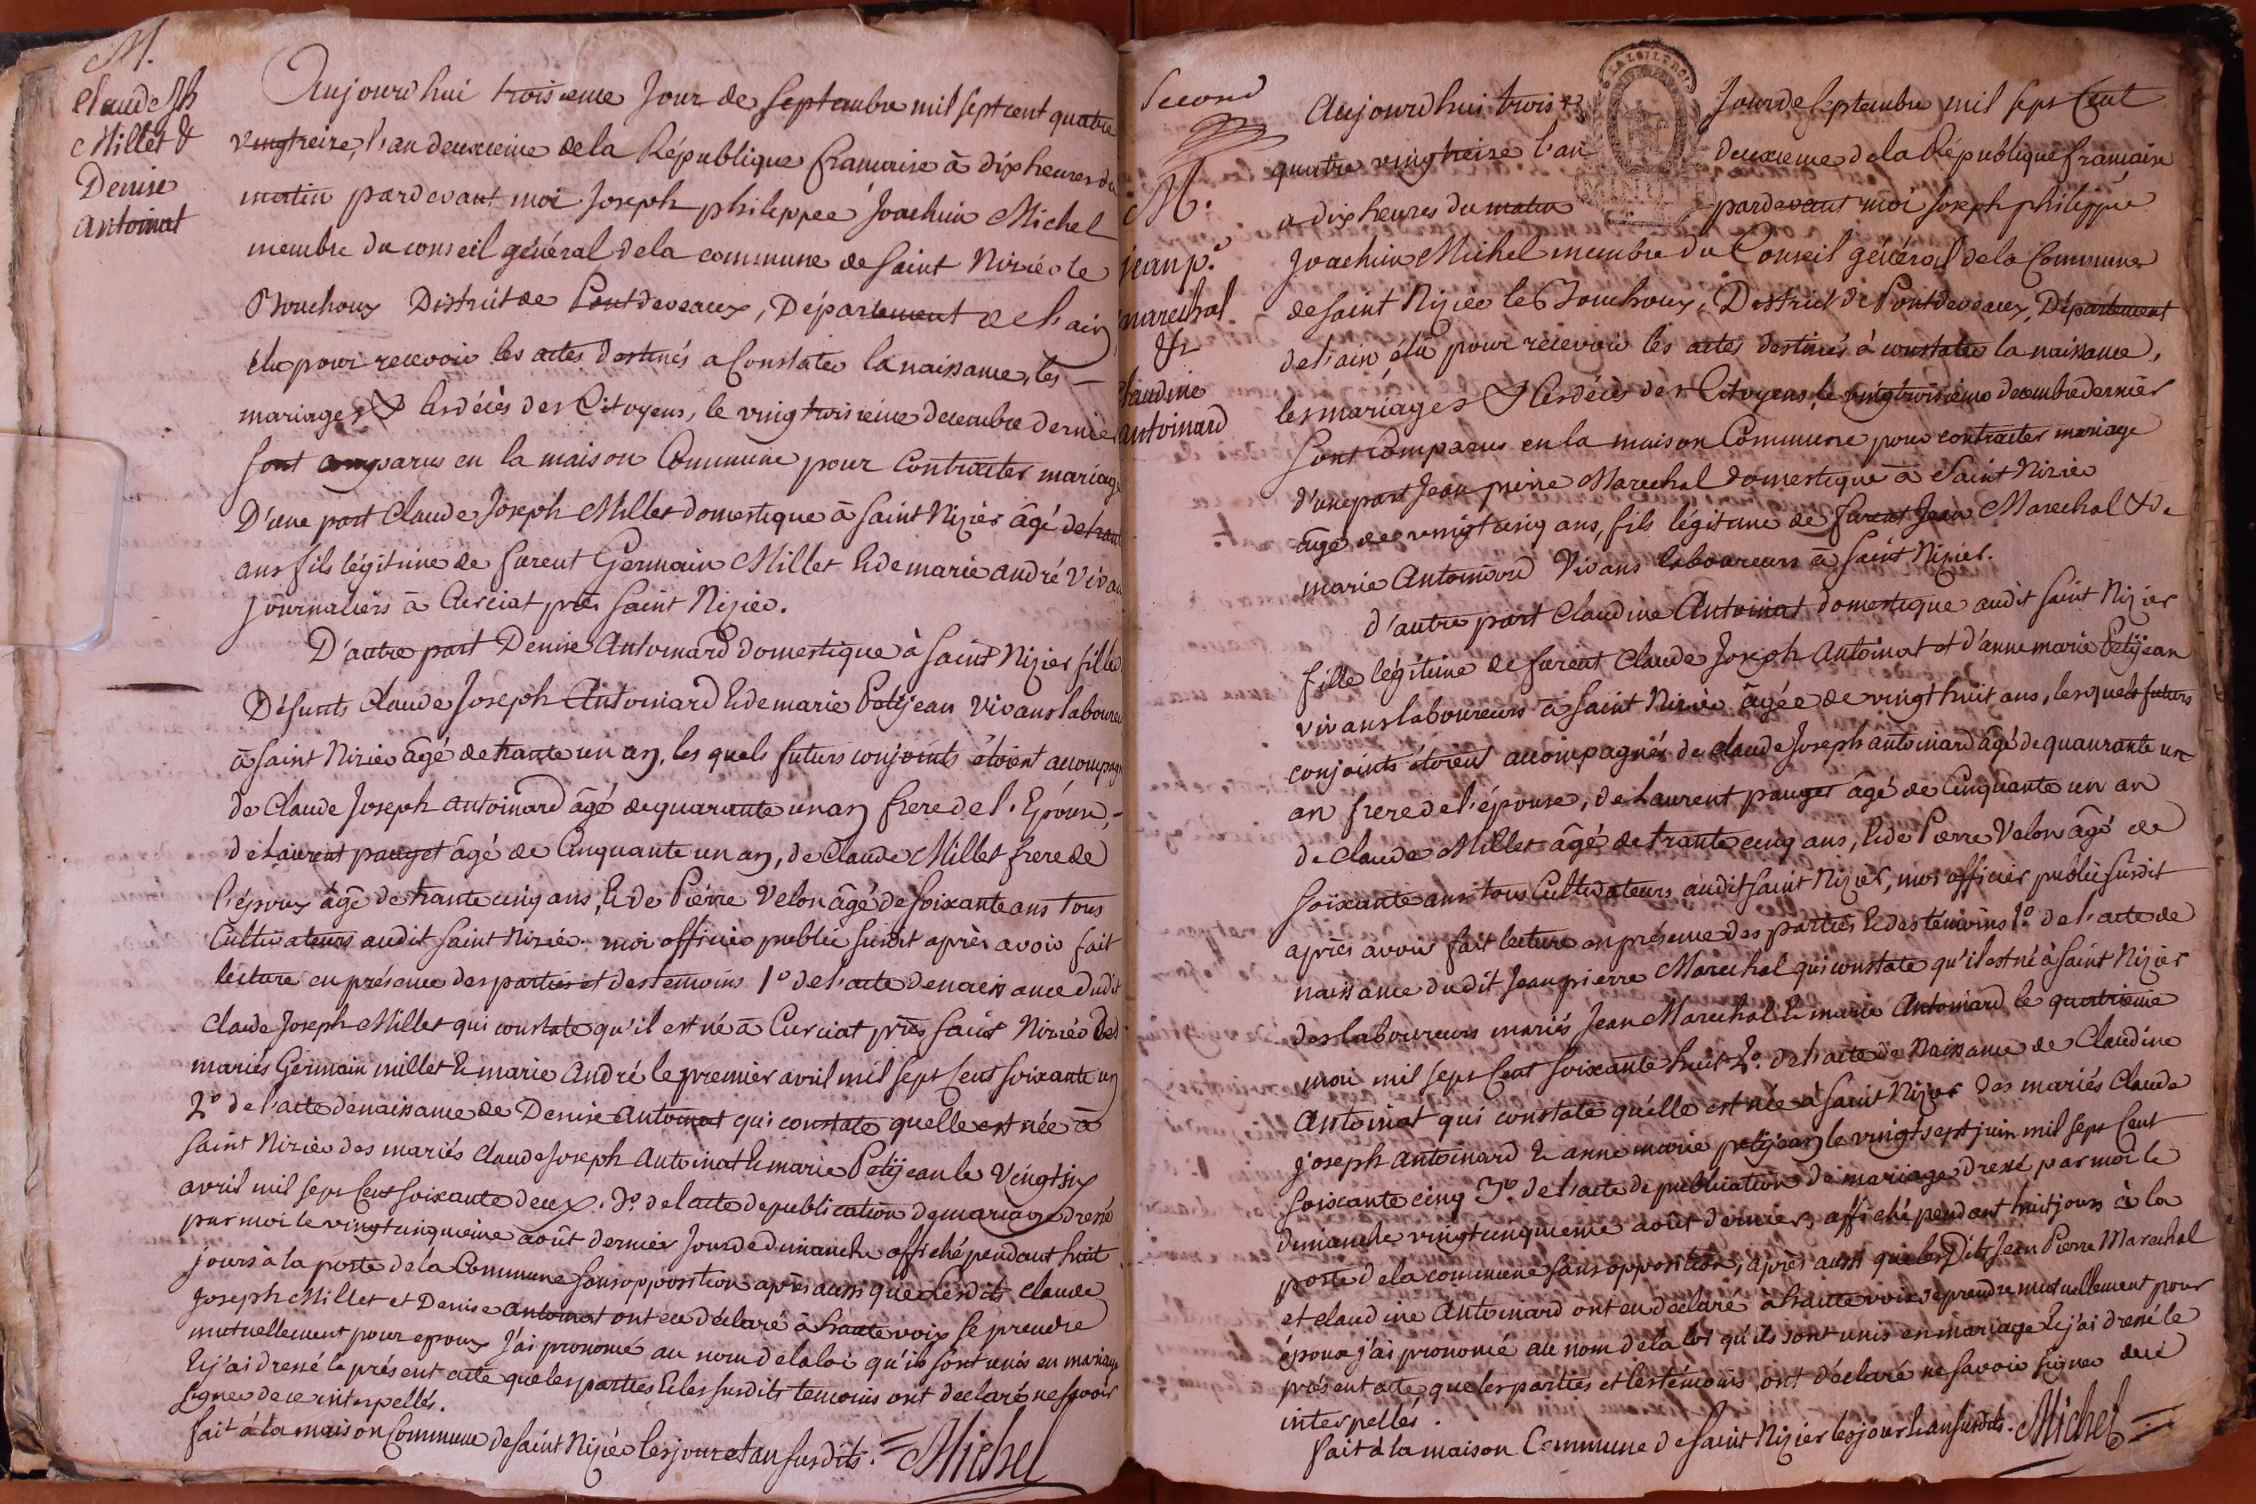 M.
Claude Jh
Millet &
Denise
antoinat
Aujourd'hui troisieme Jour de Septembre mil sept cent quatre
vingt treize, l'an deuxieme de la République francaise à dix heures du
matin pardevant moi Joseph philippee Joachim Michel
membre du conseil général de la commune de Saint Nizier le
Bouchoux District de Pontdeveaux, Département de l'ain
élu pour recevoir les actes destinés a Constater la naissance, les
mariages & les décès des Citoyens, le vingt troisieme decembre dernier
sont comparus en la maison Commune pour contracter mariage
D'une part Claude Joseph Millet domestique à Saint Nizier âgé de trante
ans fils légitime de furent Germain Millet & de marie andré Vivans
Journaliers à Curciat près Saint Nizier.
D'autre part Denise Antoinard domestique à Saint Nizier fille
Défunts Claude Joseph Antoinard & de marie Petijean Vivans laboureurs
à Saint Nizier âgé de trante un an, les quels futurs conjoints étoient accompagnés
de Claude Joseph antoinard âgé de quarante un an frere de l'Epouse,
de Laurent pauget âgé de Cinquante un an, de Claude Millet frere de
l'époux âgé de trante cinq ans, & de Piérre Velon âgé de soixante ans tous
Cultivateurs audit Saint Nizier. moi officier public susdit après avoir fait
lecture en présence des parties et des temoins 1º de l'acte de naissance dudit
Claude Joseph Millet qui constate qu'il est né à Curciat près Saint Nizier des
mariés Germain millet & marie André le premier avril mil sept Cent soixante un
2º de l'acte de naissance de Denise Antoinat qui constate quelle est née à
Saint Nizier des mariés Claude Joseph Antoinat & marie Petijean le Vingt six
avril mil sept Cent soixante deux. 3º de l'acte de publication de mariage dressé
par moi le vingt cinquieme août dernier Jour de dimanche affiché pendant huit
jours à la porte de la Commune sans opposition après aussi que Lesdits Claude
Joseph Millet et Denise Antoinat ont eu déclaré à haute voix se prendre
mutuellement pour epoux j'ai prononcé au nom de la loi qu'ils sont unis en mariage
& j'ai dressé le présent acte que les parties & les susdits temoins ont déclaré ne savoir
signer de ce interpellés.
fait à la maison Commune de Saint Nizier les jour et an susdits. Michel
Second
M.
jean p.e
marechal
&
Claudine
antoinard
Aujourd'hui trois e Jour de Septembre mil sept Cent
quatre vingt treize l'an deuxieme de la République francaise
à dix heures du matin pardevant moi Joseph philippe
Joachim Michel membre du Conseil général de la Commune
de Saint Nizier le Bouchoux, District de Pontdeveaux, Département
de l'ain élu pour recevoir les actes destinés à constater la naissance,
les mariages & les décès des Citoyens, le vingt troisieme decembre dernier
Sont Comparus en la maison Commune pour contracter mariage
d'une part Jean pierre Marechal domestique à Saint Nizier
âgé de vingt cinq ans, fils légitime de furent Jean Marechal & de
marie Antoinard Vivans laboureurs à Saint Nizier.
d'autre part Claudine Antoinat domestique audit Saint Nizier
fille légitime de furent Claude Joseph Antoinat et d'anne marie Petijean
vivans laboureurs à Saint Nizier âgée de vingt huit ans, lesquels futurs
conjoints étoient accompagnés de Claude Joseph antoinard âgé de quaurante un
an frere de l'épouse, de Laurent pauget âgé de Cinquante un an
de Claude Millet âgé de trante cinq ans, & de Pierre Velon âgé de
soixante ans tous Cultivateurs audit Saint Nizier, moi officier public susdit
après avoir fait lecture en présence des parties & des témoins 1º de l'acte de
naissance dudit Jean pierre Marechal qui constate qu'il est né à Saint Nizier
des laboureurs mariés Jean Marechal & marie Antoinard le quatrieme
mai mil sept Cent soixante huit 2º. de l'acte de naissance de Claudine
Antoinat qui constate qu'elle est née à Saint Nizier des mariés Claude
Joseph Antoinard & anne marie petijean le vingt sept juin mil sept Cent
soixante cinq 3º de l'acte de publication de mariage dressé par moi le
dimanche vingt cinquieme août dernier affiché pendant huit jours à la
porte de la commune sans opposition, après aussi que lesdits Jean Pierre Marechal
et Claudine Antoinard ont eu declaré à haute voix se prendre mutuellement pour
époux j'ai prononcé au nom de la loi qu'ils sont unis en mariage & j'ai dressé le
présent acte que les parties et les témoins ont déclaré ne savoir signer de ce
interpellés.
fait à la maison Commune de Saint Nizier les jour & an susdits. Michel